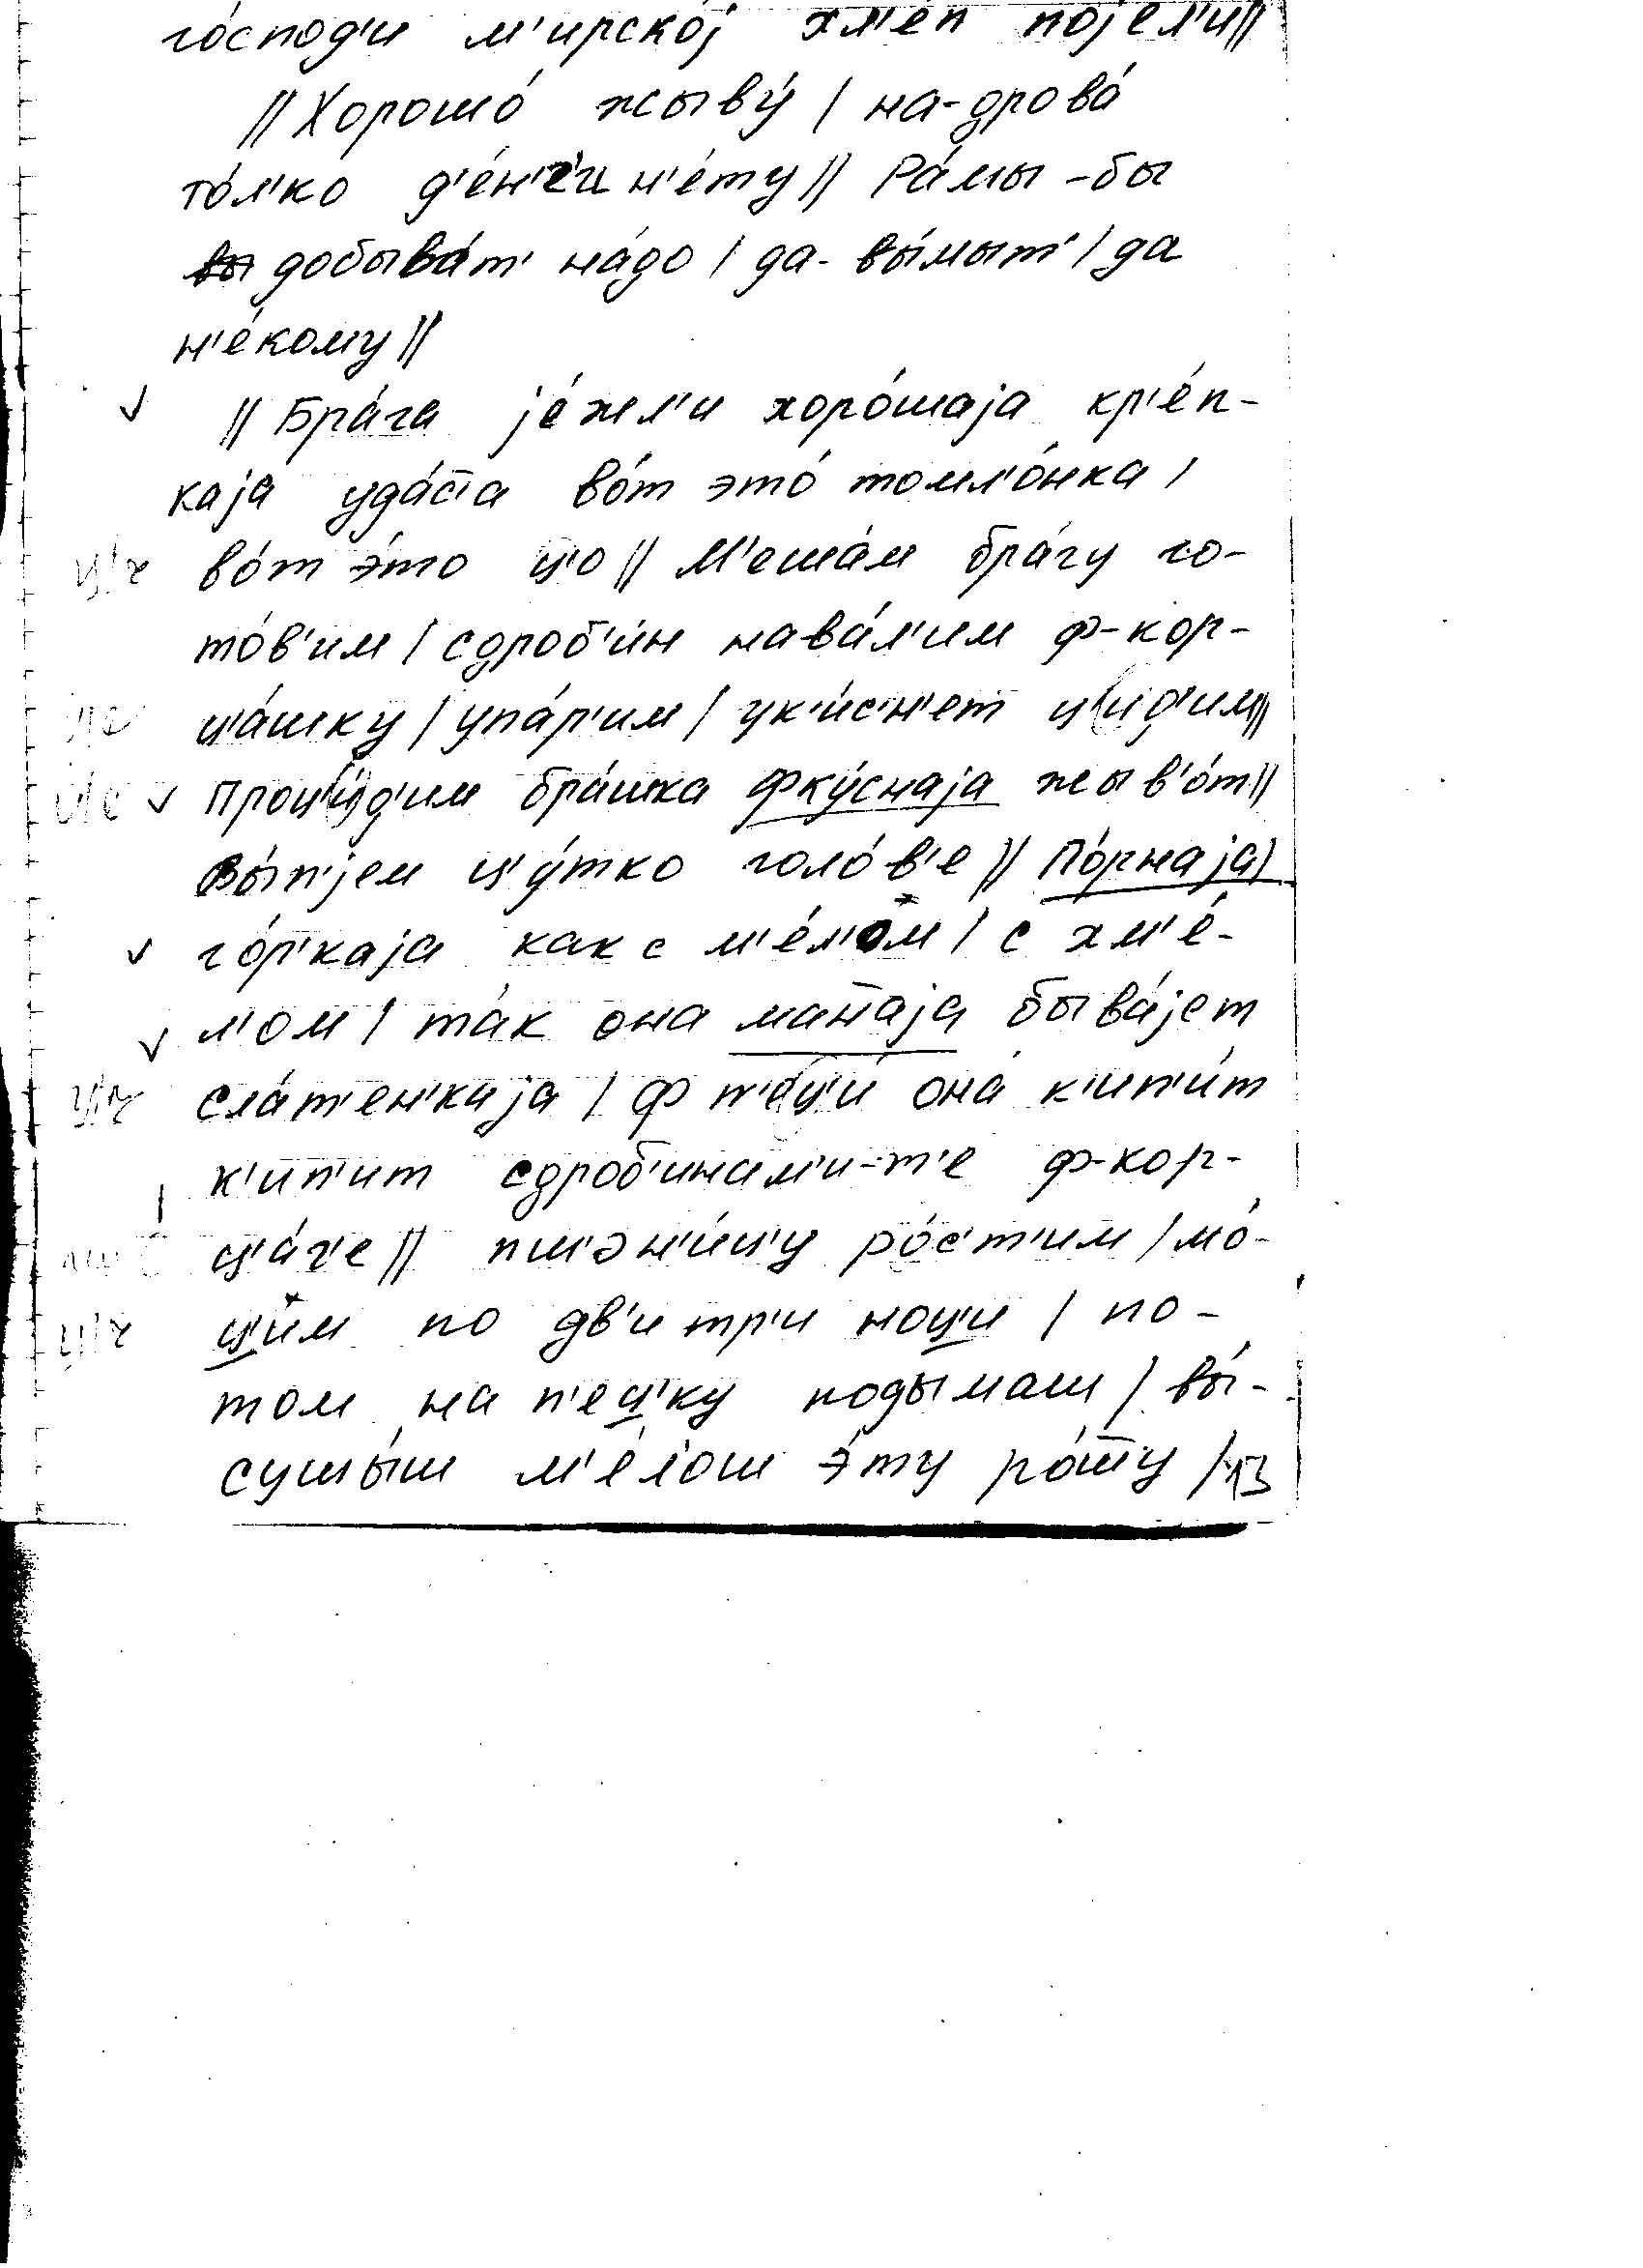 го́спод'и м'ирско́ј хл'е́п појел'и||
||Хорошо́ жыву́ | на-дрова́
то́л'ко д'е́н'г'и н'е́ту|| Ра́мы-бы
добыва́т' на́до | да-вы́мыт' | да
н'е́кому||
|| Бра́га је́жл'и хоро́шаја кр'е́п-
каја уда́с̄а во́т э́то томл'о́нка |
во́т э́то ц'о || М'еша́м бра́гу го-
то́в'им | сдроб'и́н нава́л'им ф-кор-
ц'а́шку | упа́р'им | ук'и́с'н'ет ц'ид'им||
Проц'и́д'им бра́шка фку́снаја жыв'о́т||
вы́п'јем ц'у́тко голо́в'е || По́рнаја|
го́р'каја как с м'е́л'ом | с хм'е́-
л'ом | та́к она мат̄аја быва́јет
сла́т'ен'каја | ф п'ец'и́ она́ к'ип'и́т
к'ип'ит сдроб'инам'и-т'е ф-кор-
ц'а́г'е || пш'эн'и́ц'у ро́с'т'им | мо́-
ц'им по дв'и тр'и ноц'и | по-
том на п'ец'ку подымаш | вы́-
сушы́ш м'е́л'ош э́ту ро́ш̄у | 13
ц'|ч
ц'|ч
ц'|ч